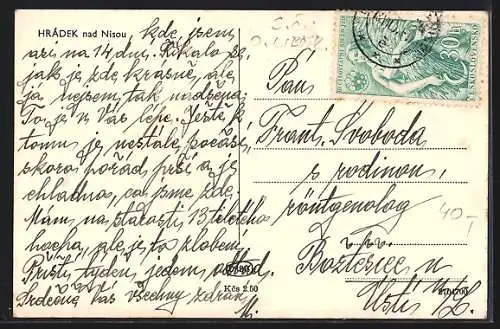 HRÁDEK nad Nisou kde jsem
asi na 14 dní. Říkalo se,
jak je zde krásně, ale
já nejsem tak nadšena.
To je u Vás lépe. Ještě k
tomu je nestálé počasí,
skoro pořád prší a je
chladno, co jsme zde.
Mám na starosti 13 letého
hocha, ale je to zloben.
Příští týden jedem
Srdečně Vás všechny zdraví
M.
Kčs 2.50
30 h
ČESKOSLOVENSKO
Pán
Frant. Svoboda
s rodinou,
röntgenolog
Božtěšice u
Ústí n/L.
40,-